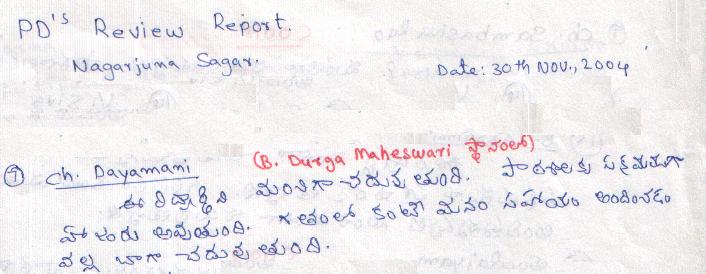 PD'S Review Report.
Nagarjuna Sagar.
Date: 30th NOV., 2004
(B. Durga Maheswari స్థానంలో)
① Ch. Dayamani
ఈ విద్యార్థిని మంచిగా చదువుతుంది. పాఠశాలకు సక్రమముగా
హాజరు అవుతుంది. గతంలో కంటే మనం సహాయం అందించడం
వల్ల బాగా చదువుతుంది.